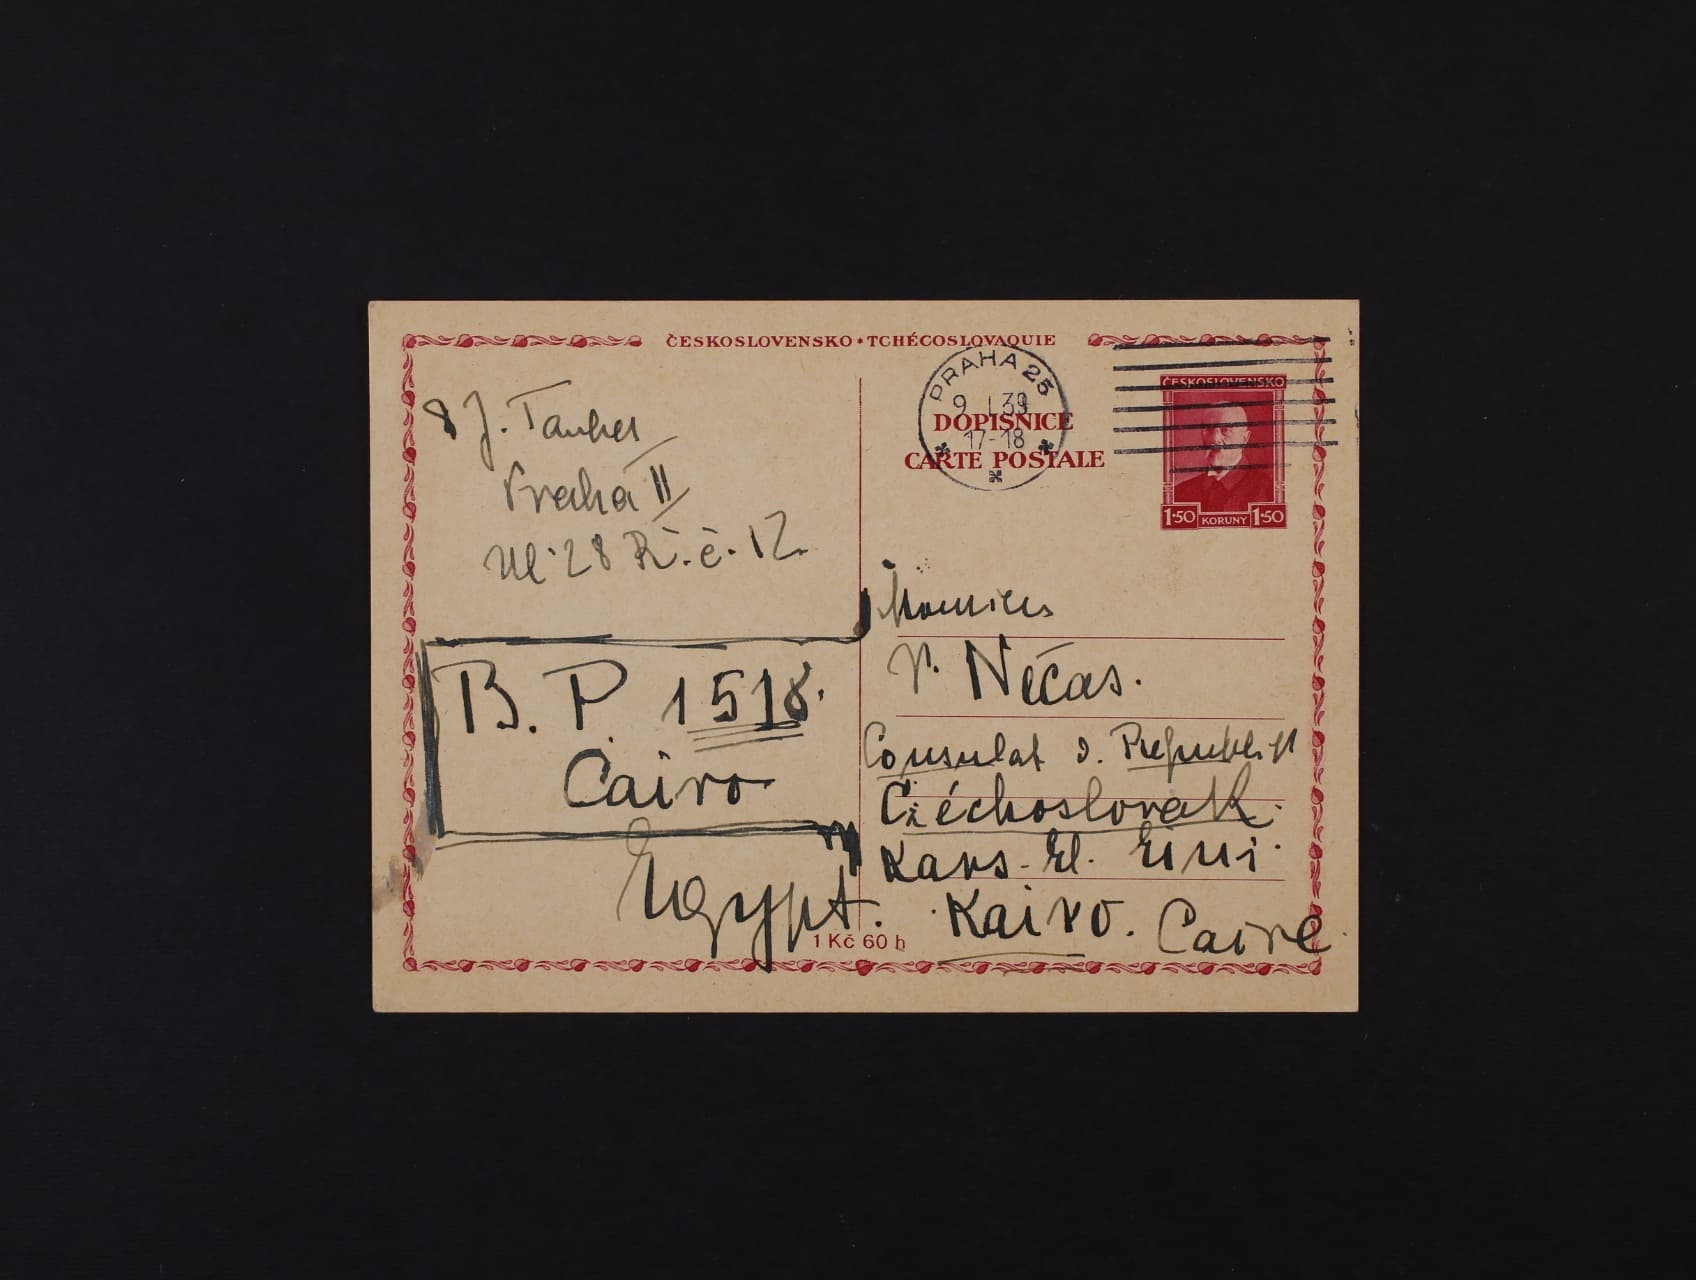 ČESKOSLOVENSKO • TCHÉCOSLOVAQUIE
PRAHA 25
9.I.39
17-18
DOPISNICE
CARTE POSTALE
ČESKOSLOVENSKO
1·50 KORUNY 1·50
J. Tauber
Praha II
Ul 28 Ř. č. 12.
B. P. 1518.
Cairo
Egypt.
Monsieur
V. Nečas.
Consulat d. Republik
Czéchoslovak.
Kars-El. Eini.
Kairo. Caire
1 Kč 60 h